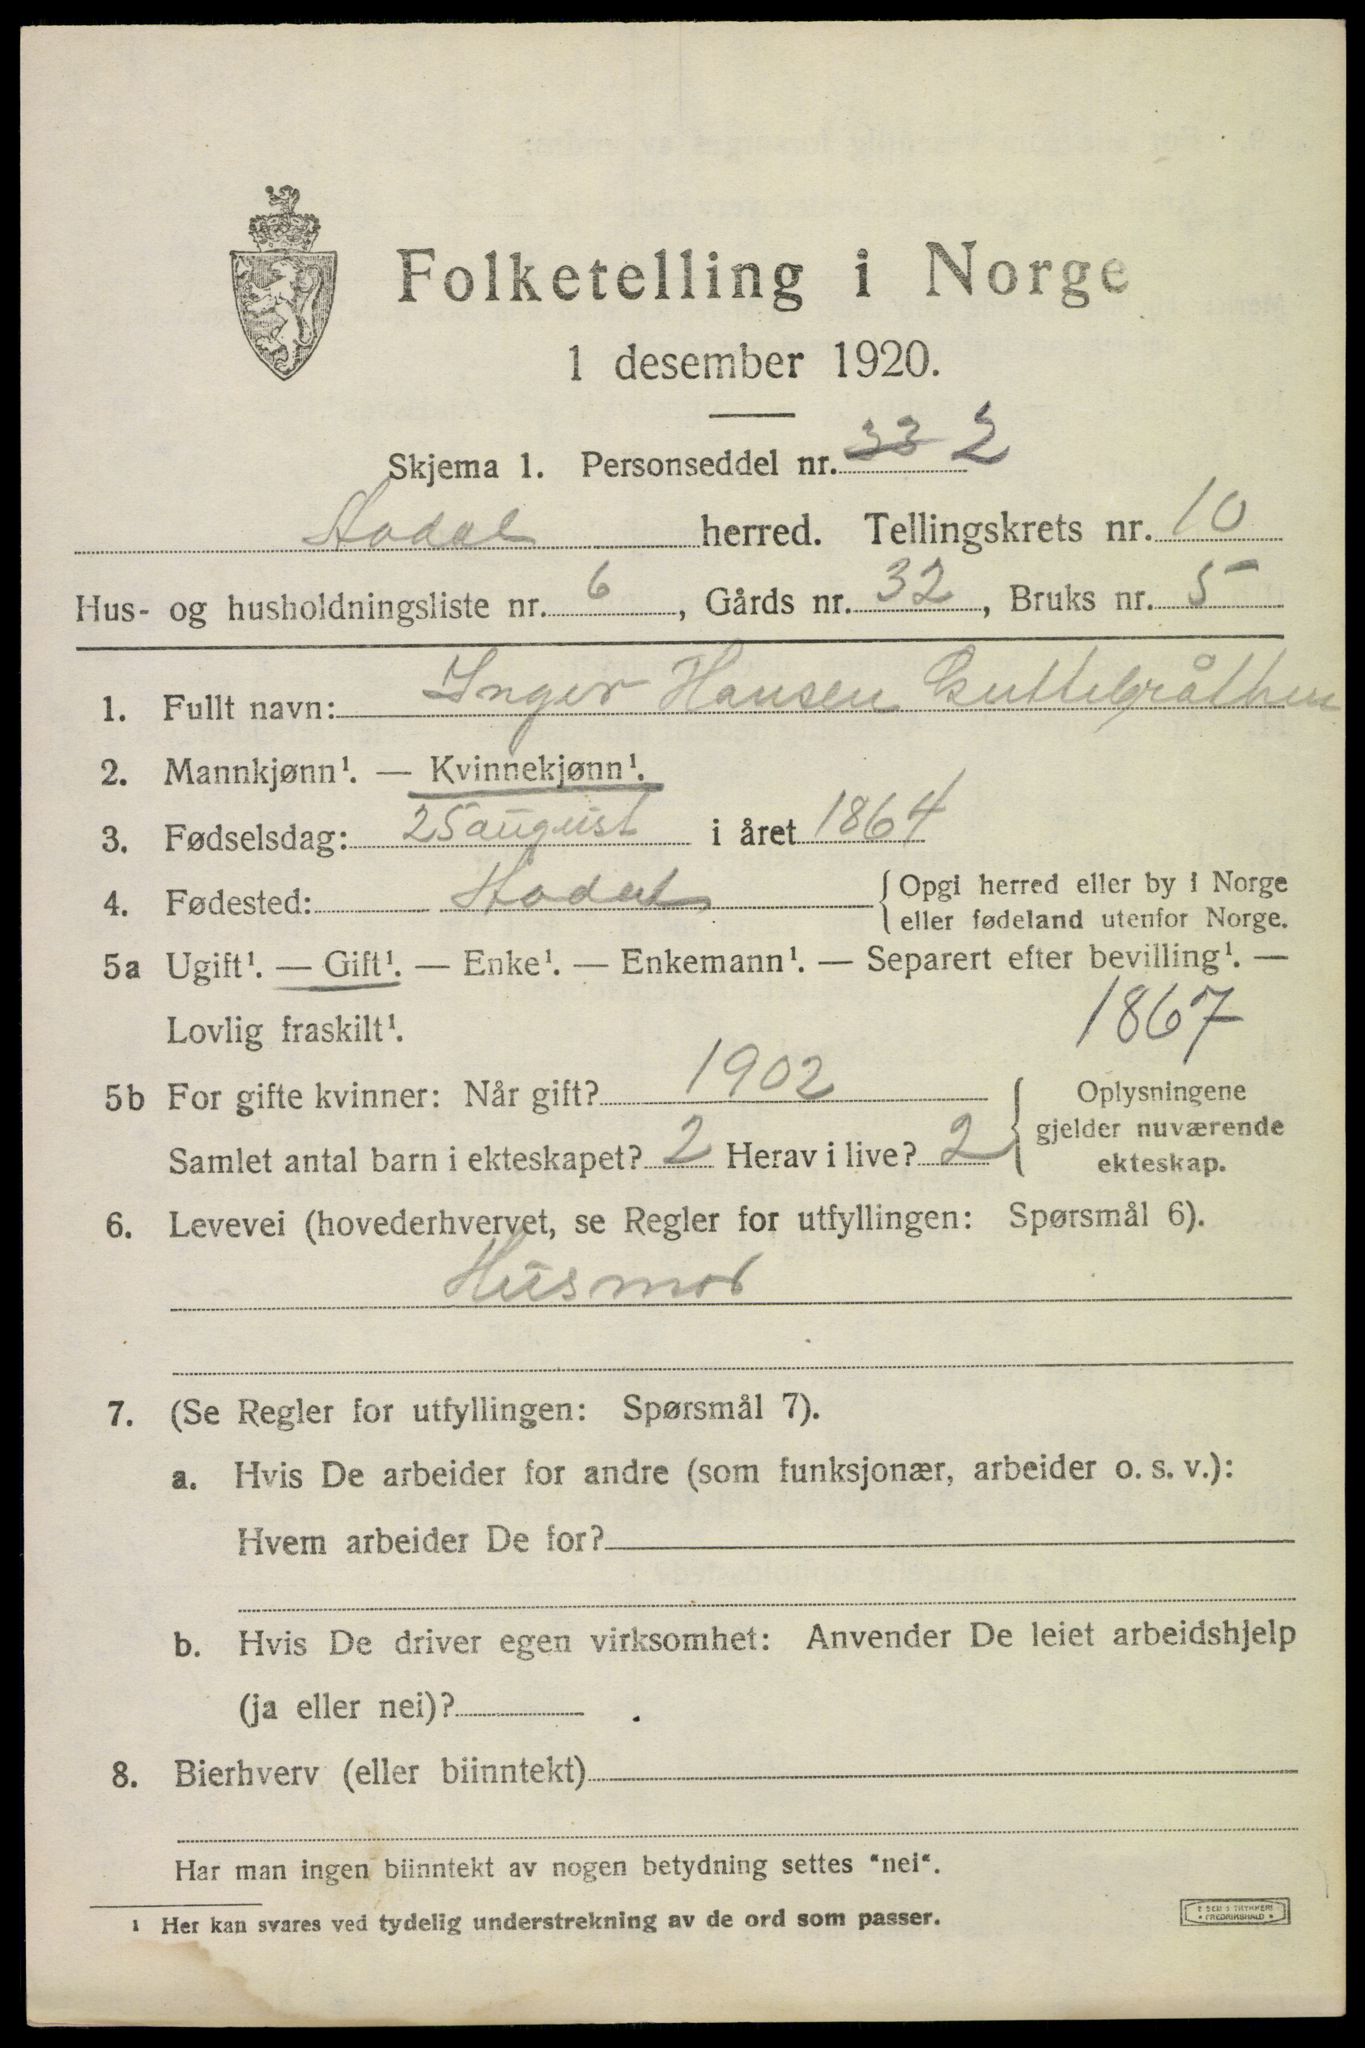 Folketelling i Norge
1 desember 1920.
Skjema 1. Personseddel nr. 33 2
Aadal herred. Tellingskrets nr. 10
Hus- og husholdningsliste nr. 6, Gårds nr. 32, Bruks nr. 5
1. Fullt navn: Inger Hansen
2. Mannkjønn¹. — Kvinnekjønn¹.
3. Fødselsdag: 25 august i året 1864
4. Fødested: { Opgi herred eller by i Norge
eller fødeland utenfor Norge.
5a Ugift¹. — Gift¹. — Enke¹. — Enkemann¹. — Separert efter bevilling¹. —
Lovlig fraskilt¹. 1867
5b For gifte kvinner: Når gift? 1902 { Oplysningene
gjelder nuværende
Samlet antal barn i ekteskapet? 2 Herav i live? 2
ekteskap.
6. Levevei (hovederhvervet, se Regler for utfyllingen: Spørsmål 6).
Husmor
7. (Se Regler for utfyllingen: Spørsmål 7).
a. Hvis De arbeider for andre (som funksjonær, arbeider o. s. v.):
Hvem arbeider De for?
b. Hvis De driver egen virksomhet: Anvender De leiet arbeidshjelp
(ja eller nei)?
8. Bierhverv (eller biinntekt)
Har man ingen biinntekt av nogen betydning settes "nei".
¹ Her kan svares ved tydelig understrekning av de ord som passer.
FREDRIKSHALD